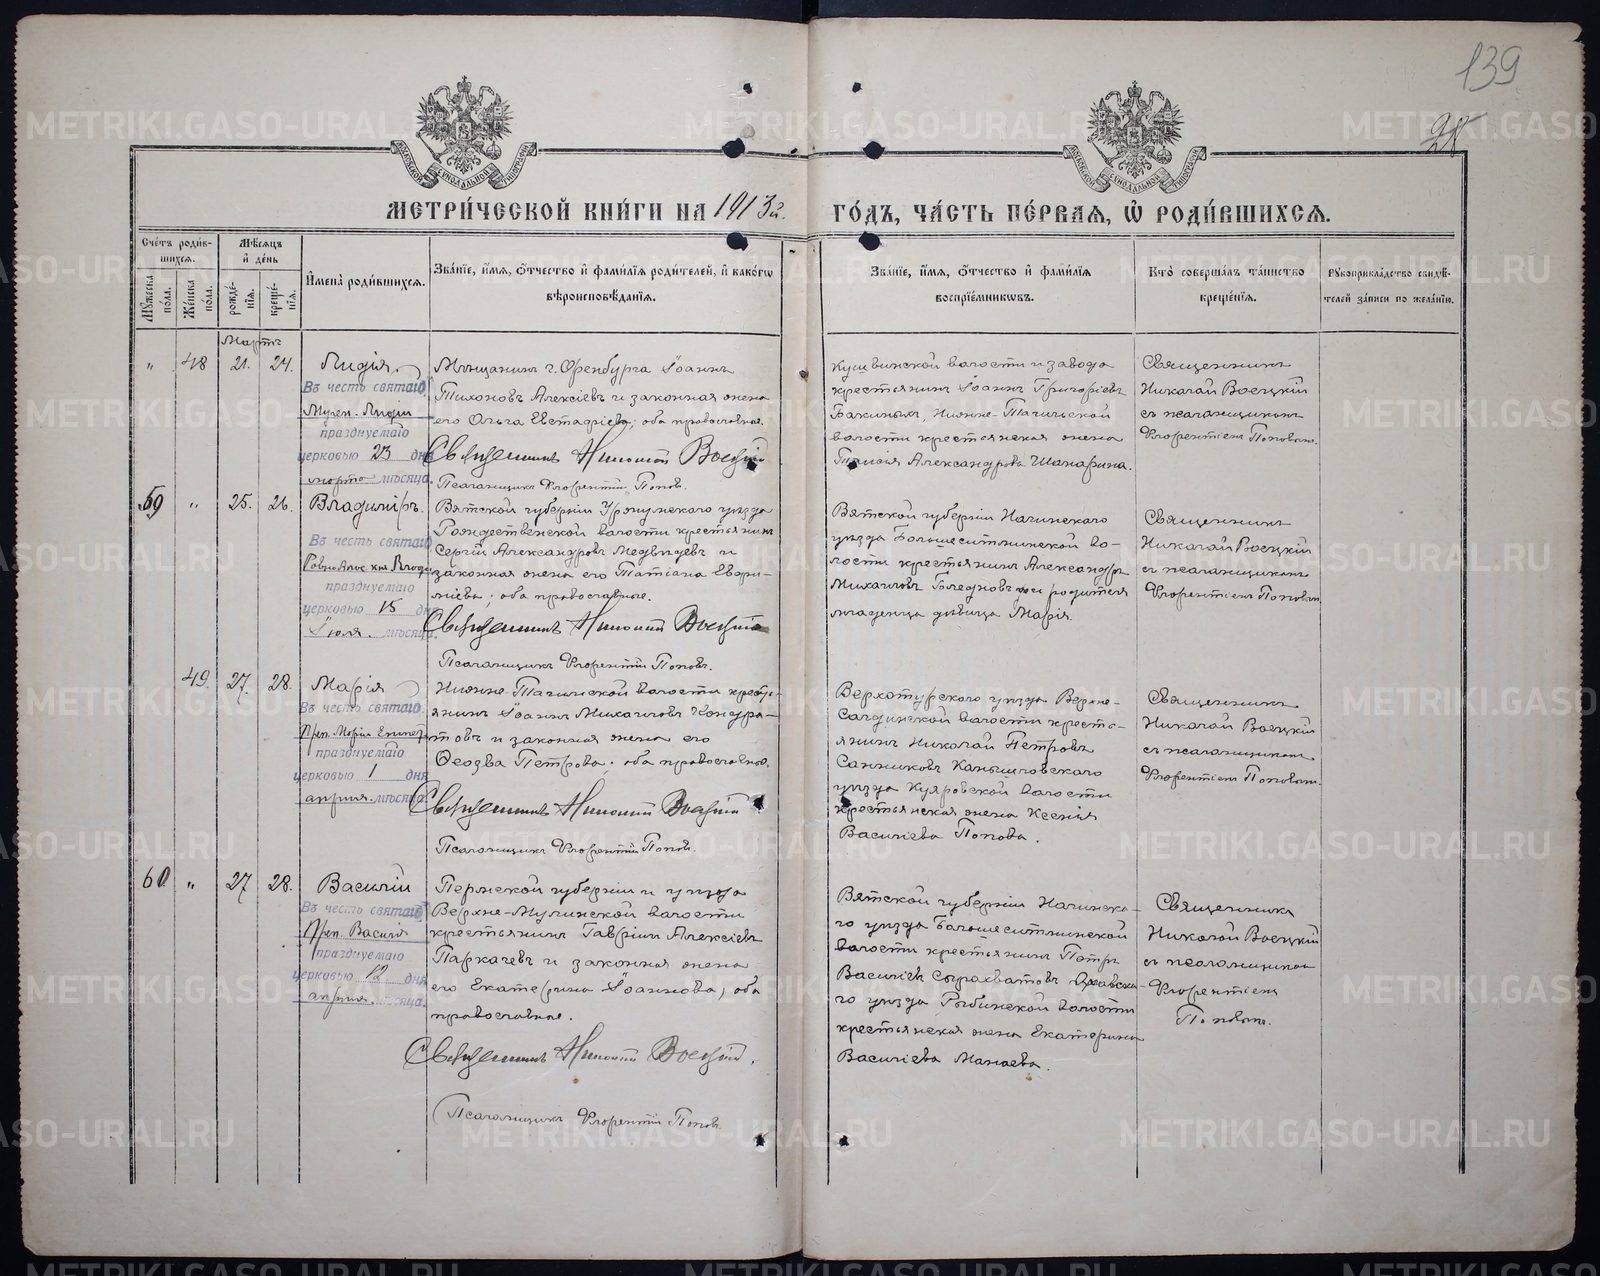 139
28
МЕТРИЧЕСКОЙ КНИГИ НА 1913й. ГОДЪ, ЧАСТЬ ПЕРВАЯ, Ѡ РОДИВШИХСЯ.
Счетъ родившихся.
Мужеска пола.
Женска пола.
Мѣсяцъ и день
рожденія.
крещенія.
Имена родившихся.
Званіе, имя, отчество и фамилія родителей, и какого
вѣроисповѣданія.
Званіе, имя, отчество и фамилія
воспріемниковъ.
Кто совершалъ таинство
крещенія.
Рукоприкладство свидѣ-
телей записи по желанію.
Мартъ
" 48 21. 24. Лидія.
Въ честь святаго
Мучен. Лидіи
празднуемаго
церковью 23 дня
марта мѣсяца.
Мѣщанинъ г. Оренбурга Іоаннъ
Тихоновъ Алексіевъ и законная жена
его Ольга Евстафіева; оба православные.
Священникъ Николай Воецкій
Псаломщикъ Флорентій Поповъ.
Кушвинской волости и завода
крестьянинъ Іоаннъ Григоріевъ
Бакиныхъ, Нижне-Тагильской
волости крестьянская жена
Таисія Александрова Шапарина.
Священникъ
Николай Воецкій
съ псаломщикомъ
Флорентіемъ Поповымъ.
59 " 25. 26. Владиміръ.
Въ честь святаго
Равноапос. кня. Влади
празднуемаго
церковью 15 дня
Іюля. мѣсяца.
Вятской губерніи Уржумскаго уѣзда
Рождественской волости крестьянинъ
Сергій Александровъ Медвѣдевъ и
законная жена его Татіана Евфи-
міева; оба православные.
Священникъ Николай Воецкій
Псаломщикъ Флорентій Поповъ.
Вятской губерніи Нолинскаго
уѣзда Большеситминской во-
лости крестьянинъ Александръ
Михаиловъ Бледновъ и родителя
младенца дѣвица Марія.
Священникъ
Николай Воецкій
съ псаломщикомъ
Флорентіемъ Поповымъ.
49. 27. 28. Марія
Въ честь святаго
Преп. Маріи Египет
празднуемаго
церковью 1 дня
апрѣля. мѣсяца.
Нижне-Тагильской волости кресть-
янинъ Іоаннъ Михаиловъ Кондра-
товъ и законная жена его
Ѳеозва Петрова; оба православные.
Священникъ Николай Воецкій
Псаломщикъ Флорентій Поповъ.
Верхотурскаго уѣзда Верхне-
Салдинской волости кресть-
янинъ Николай Петровъ
Санниковъ Камышловскаго
уѣзда Куяровской волости
крестьянская жена Ксенія
Василіева Попова.
Священникъ
Николай Воецкій
съ псаломщикомъ
Флорентіемъ Поповымъ.
60 " 27 28. Василій
Въ честь святаго
Преп. Василія
празднуемаго
церковью 12 дня
апрѣля. мѣсяца.
Пермской губерніи и уѣзда
Верхне-Муллинской волости
крестьянинъ Гавріилъ Алексіевъ
Паркачевъ и законная жена
его Екатерина Іоаннова; оба
православные.
Священникъ Николай Воецкій.
Псаломщикъ Флорентій Поповъ
Вятской губерніи Нолинска-
го уѣзда Большеситминской
волости крестьянинъ Петръ
Василіевъ Сырохватовъ Оханска-
го уѣзда Рябинской волости
крестьянская жена Екатерина
Василіева Манаева.
Священникъ
Николай Воецкій
съ псаломщикомъ
Флорентіемъ
Поповымъ.
METRIKI.GASO-URAL.RU